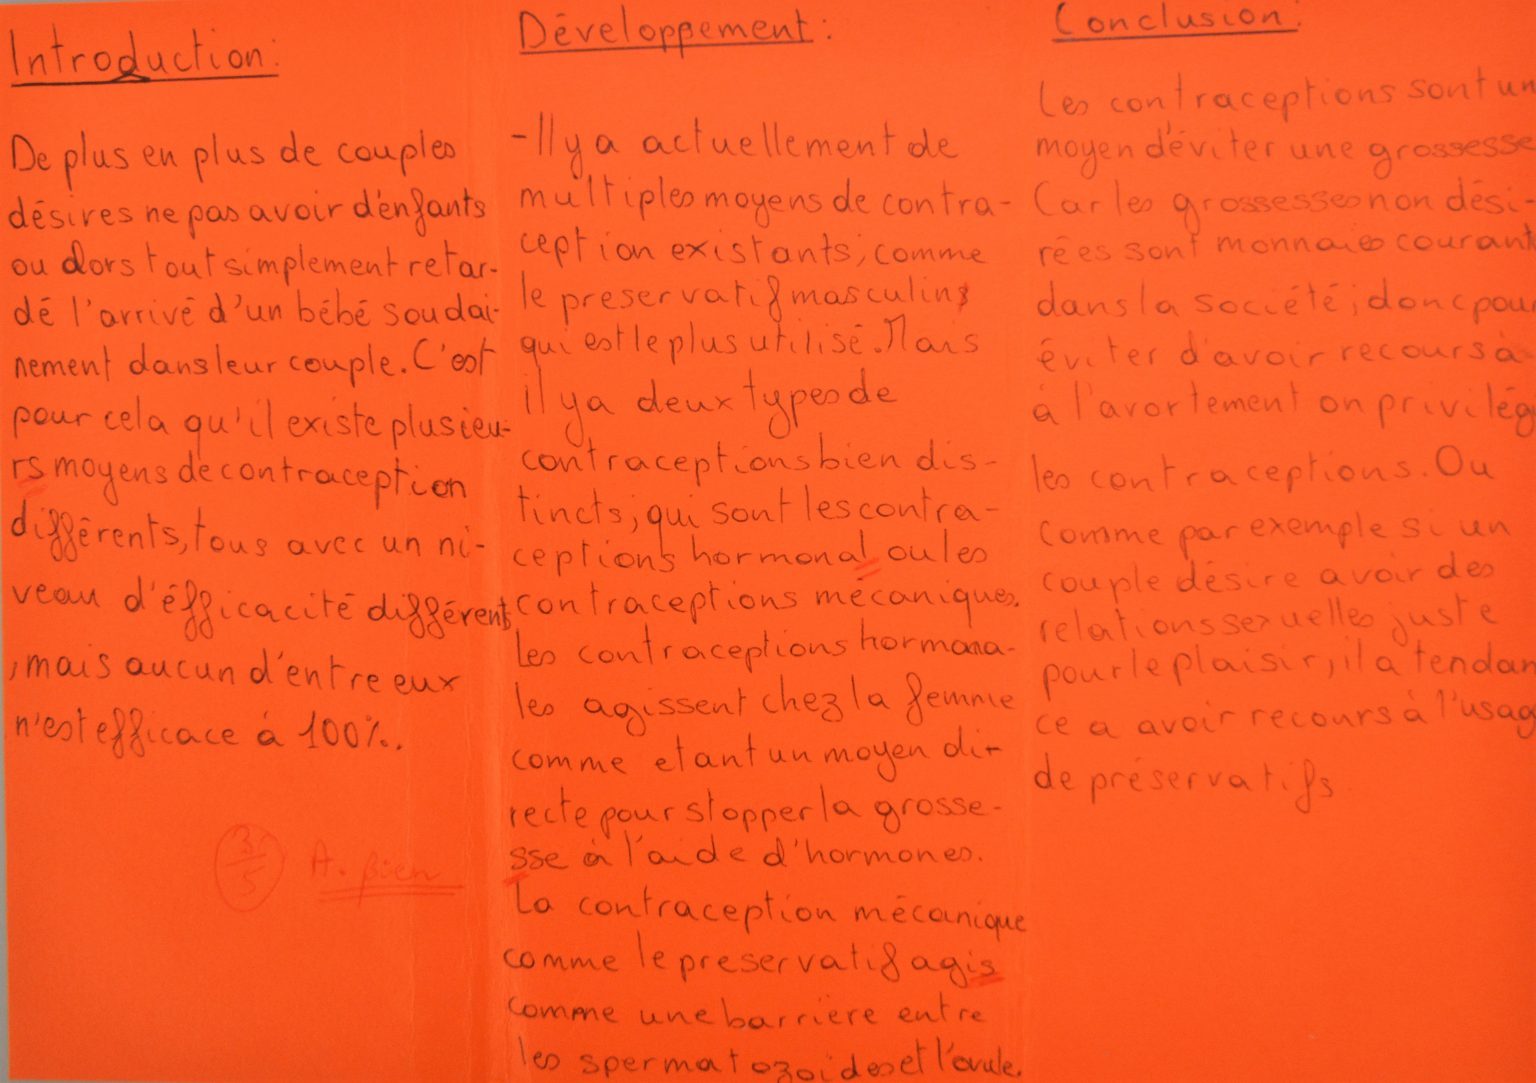 Introduction:
De plus en plus de couples
désires ne pas avoir d'enfants
ou alors tout simplement retar-
dé l'arrivé d'un bébé soudai-
nement dans leur couple. C'est
pour cela qu'il existe plusieu-
rs moyens de contraception
différents, tous avec un ni-
veau d'éfficacité différent
, mais aucun d'entre eux
n'est efficace à 100%.
3/5 A. Bien
Développement:
- Il y a actuellement de
multiples moyens de contra-
ception existants, comme
le preservatif masculin
qui est le plus utilisé. Mais
il y a deux types de
contraceptions bien dis-
tincts, qui sont les contra-
ceptions hormonal ou les
contraceptions mécaniques.
Les contraceptions hormona-
les agissent chez la femme
comme etant un moyen di-
recte pour stopper la grosse-
sse à l'aide d'hormones.
La contraception mécanique
comme le preservatif agis
comme une barrière entre
les spermatozoides et l'ovule.
Conclusion:
Les contraceptions sont un
moyen d'éviter une grossesse
Car les grossesses non dési-
rées sont monnaies courant
dans la société, donc pour
éviter d'avoir recours à
à l'avortement on privilég
les contraceptions. Ou
comme par exemple si un
couple désire avoir des
relations sexuelles juste
pour le plaisir, il a tendan
ce a avoir recours à l'usag
de préservatifs